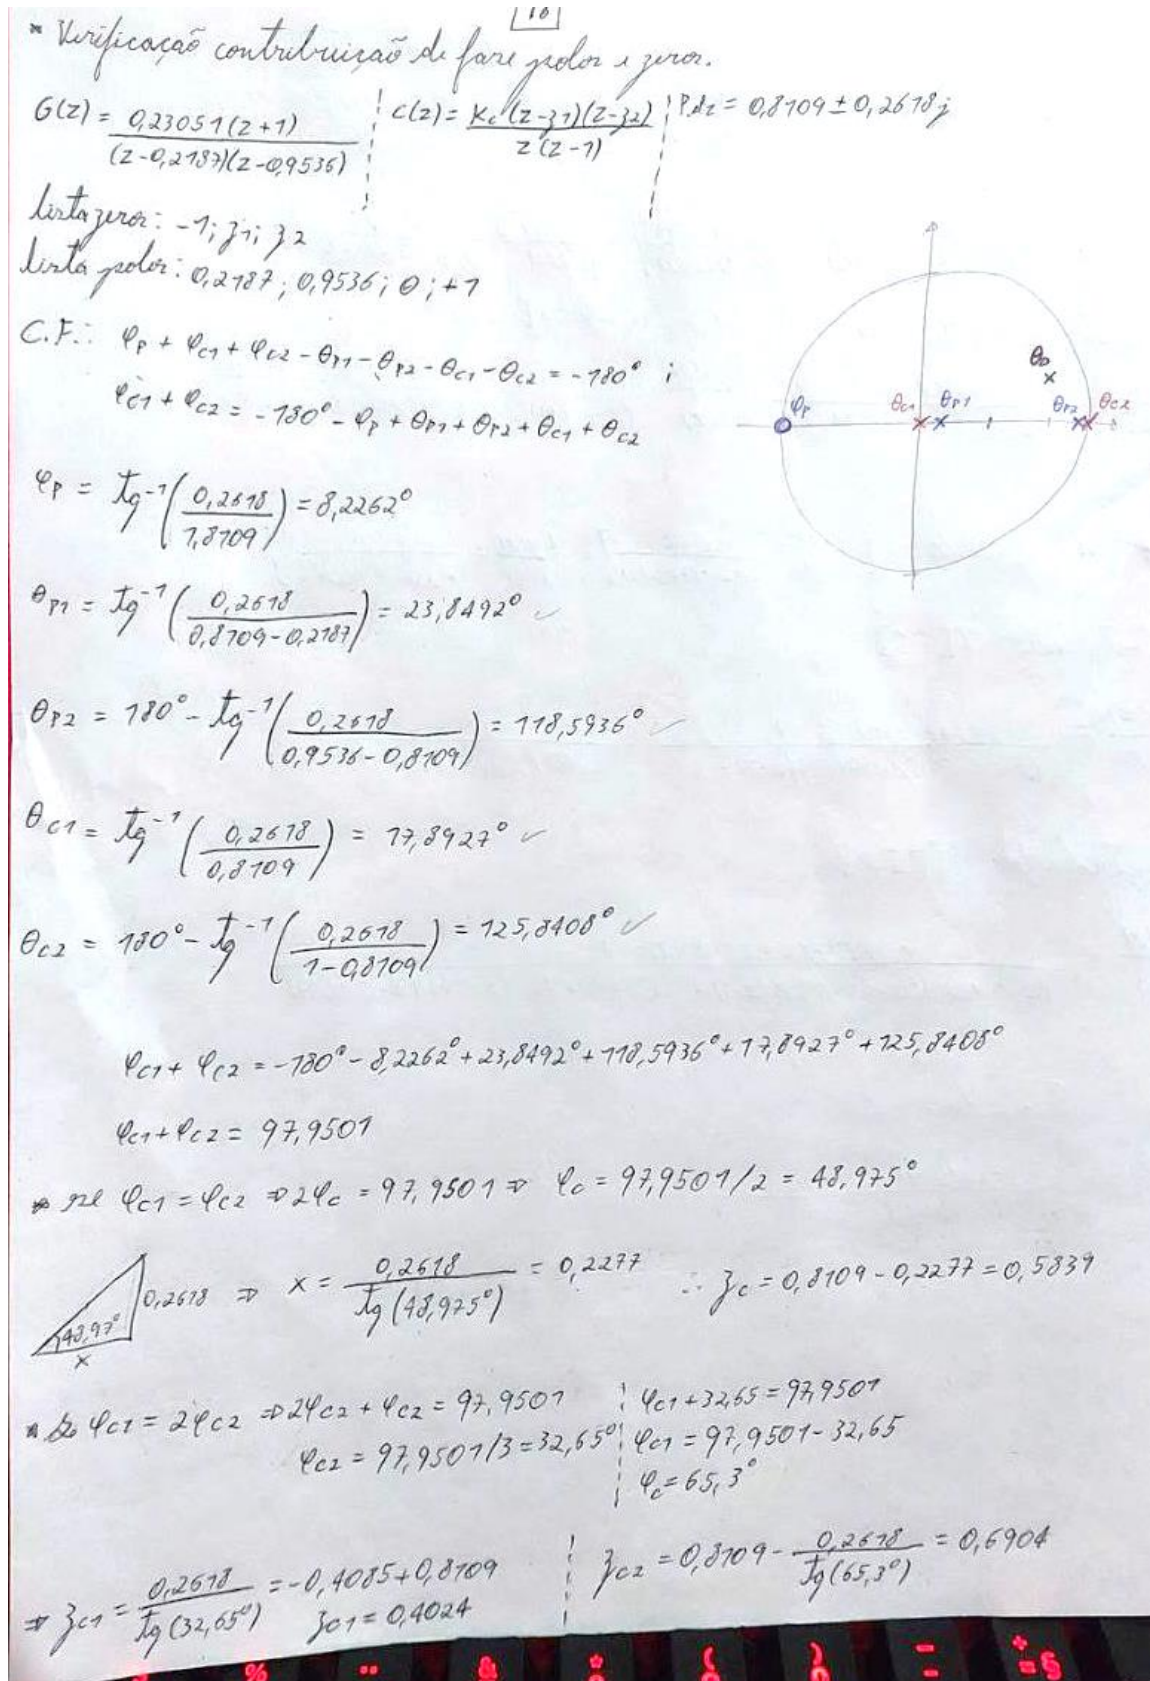 10
* Verificação contribuição de fase polos e zeros.
G(z) = 0,23051(z+1) / (z-0,2187)(z-0,9536) ¦ C(z) = Kc (z-z1)(z-z2) / z(z-1) ¦ Pdz = 0,8109 ± 0,2618j
lista zeros: -1; z1; z2
lista polos: 0,2187; 0,9536; 0; +1
C.F.: φP + φC1 + φC2 - θP1 - θP2 - θC1 - θC2 = -180° ;
φC1 + φC2 = -180° - φP + θP1 + θP2 + θC1 + θC2
θD
φP θC1 θP1 θP2 θC2
φP = tg⁻¹(0,2618 / 1,8109) = 8,2262°
θP1 = tg⁻¹(0,2618 / 0,8109-0,2187) = 23,8492° ✓
θP2 = 180° - tg⁻¹(0,2618 / 0,9536-0,8109) = 118,5936° ✓
θC1 = tg⁻¹(0,2618 / 0,8109) = 17,8927° ✓
θC2 = 180° - tg⁻¹(0,2618 / 1-0,8109) = 125,8408° ✓
φC1 + φC2 = -180° - 8,2262° + 23,8492° + 118,5936° + 17,8927° + 125,8408°
φC1 + φC2 = 97,9501
* se φC1 = φC2 ⇒ 2φC = 97,9501 ⇒ φC = 97,9501/2 = 48,975°
48,97° x 0,2618 ⇒ x = 0,2618 / tg(48,975°) = 0,2277 ∴ zC = 0,8109 - 0,2277 = 0,5839
* Se φC1 = 2φC2 ⇒ 2φC2 + φC2 = 97,9501 ¦ φC1 + 32,65 = 97,9501
φC2 = 97,9501/3 = 32,65° ¦ φC1 = 97,9501 - 32,65
φC = 65,3°
⇒ zC1 = 0,2618 / tg(32,65°) = -0,4085 + 0,8109 ¦ zC2 = 0,8109 - 0,2618 / tg(65,3°) = 0,6904
zC1 = 0,4024
% & ( ) = + §